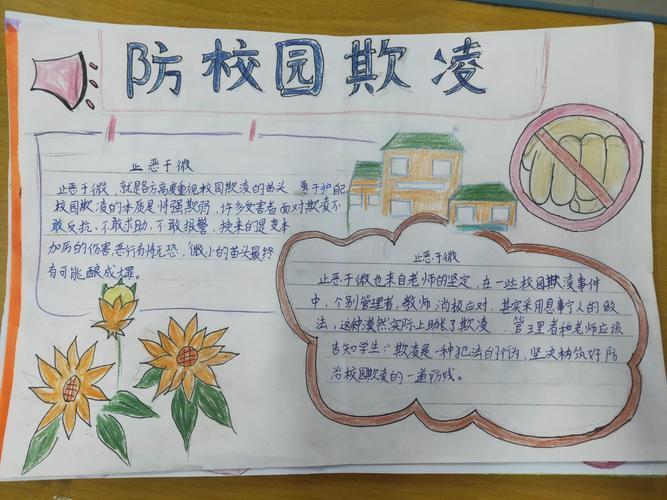 防校园欺凌
止恶于微
止恶于微，就是各方高度重视校园欺凌的苗头 勇于护配
校园欺凌的本质是恃强欺弱，许多受害者面对欺凌不
敢反抗，不敢求助，不敢报警，换来的是变本
加厉的伤害，恶行有恃无恐，微小的苗头最终
有可能酿成大罪。
止恶于微
止恶于微也来自老师的坚定，在一些校园欺凌事件
中，个别管理者，教师，消极应对，甚实采用息事宁人的做
法，这种漠然实际上助长了欺凌，管理者和老师应该
告知学生：欺凌是一种犯法的行为，坚决构筑好防
治校园欺凌的一道防线。